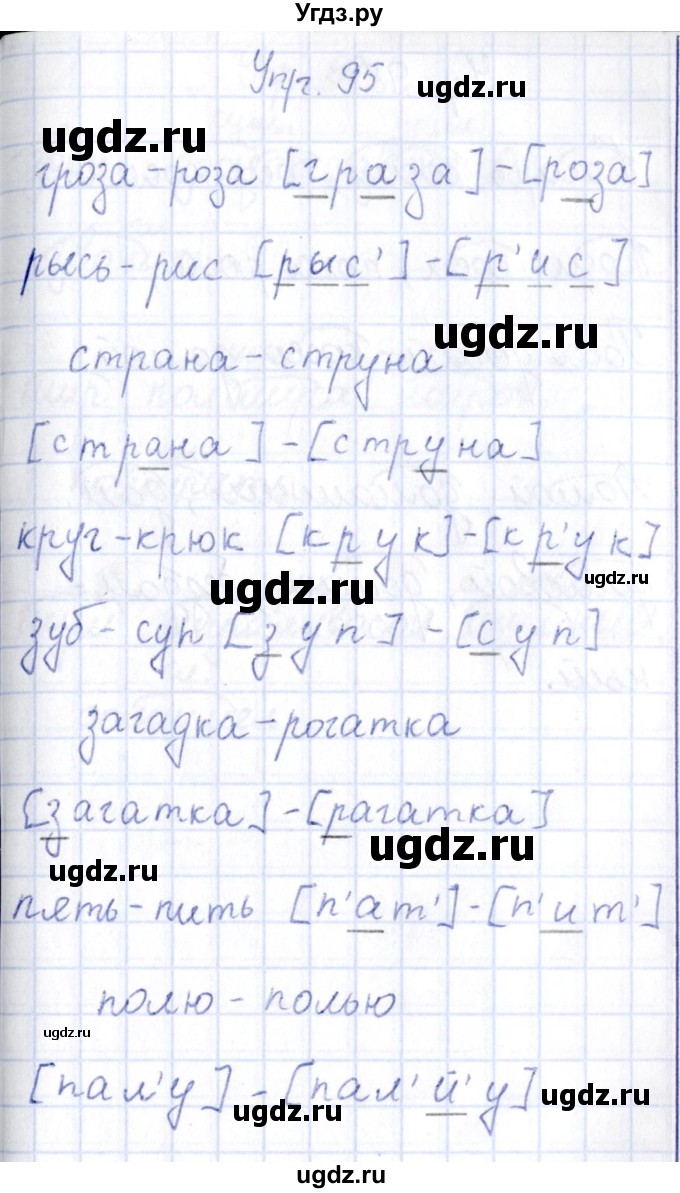 Угдз.ру
Упр. 95
ugdz.ru
ugdz.ru
гроза - роза [граза] - [роза]
рысь - рис [рыс'] - [р'ис]
ugdz.ru
страна - струна
[страна] - [струна]
круг - крюк [крук] - [кр'ук]
ugdz.ru
ugdz.ru
зуб - суп [зуп] - [суп]
загадка - рогатка
[загатка] - [рагатка]
ugdz.ru
ugdz.ru
пять - пить [п'ат'] - [п'ит']
полю - полью
ugdz.ru
[пал'у] - [пал'й'у]
ugdz.ru
ugdz.ru
ugdz.ru